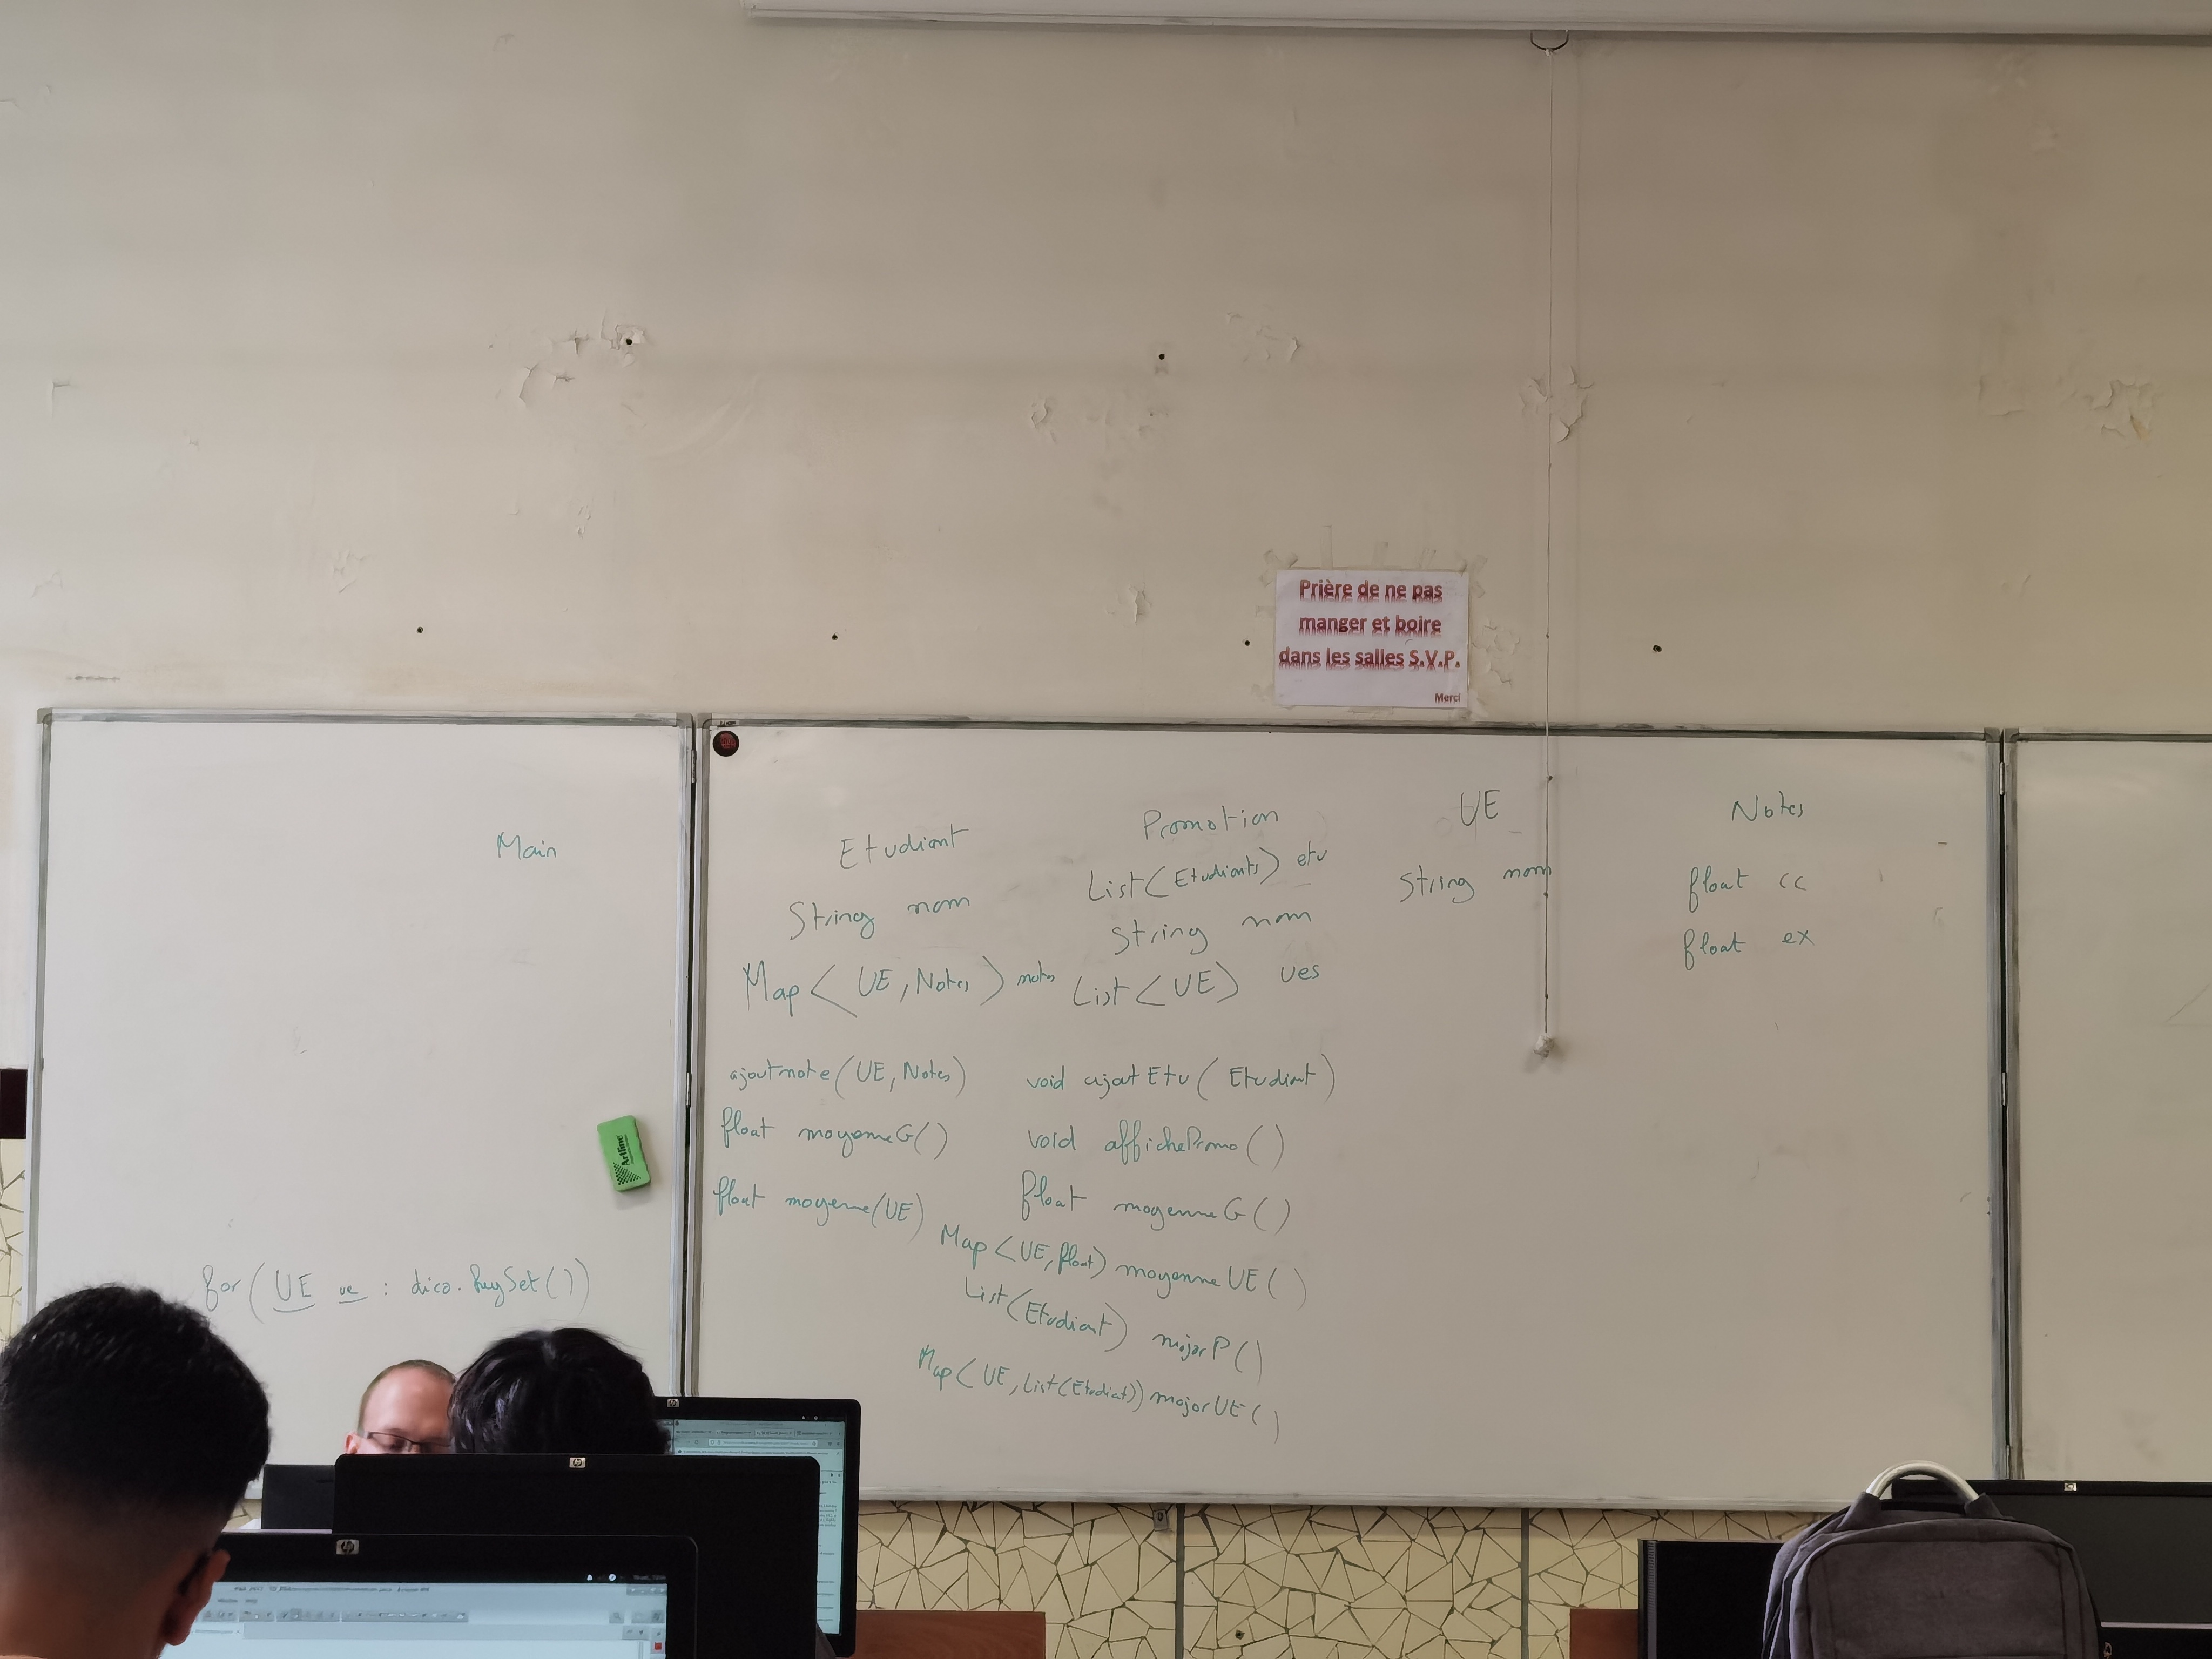 Prière de ne pas
manger et boire
dans les salles S.V.P.
Merci
Main
for (UE ue : dico.keySet())
Artline
Etudiant
String nom
Map < UE, Notes > notes
ajoutnote (UE, Notes)
float moyenneG()
float moyenne(UE)
Promotion
List < Etudiants > etu
String nom
List < UE > ues
void ajoutEtu ( Etudiant )
void affichePromo ()
float moyenneG ()
Map < UE, float > moyenneUE ()
List < Etudiant > majorP ()
Map < UE, List < Etudiant >> majorUE ()
UE
String nom
Notes
float cc
float ex
hp
hp
hp
hp